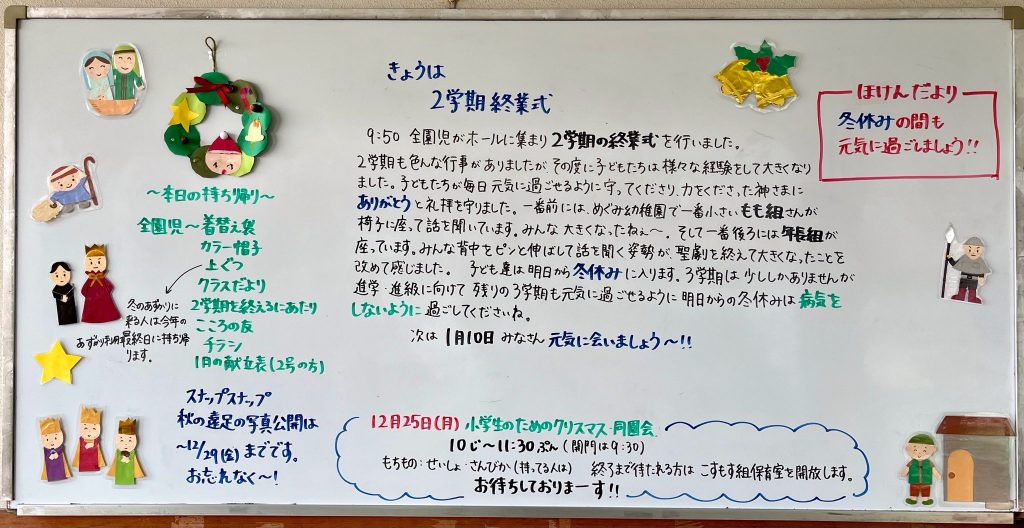 きょうは
2学期終業式
9:50 全園児がホールに集まり2学期の終業式を行いました。
2学期も色んな行事がありましたがその度に子どもたちは様々な経験をして大きくなり
ました。子どもたちが毎日元気に過ごせるように守ってくださり、力をくださった神さまに
ありがとうと礼拝を守りました。一番前には、めぐみ幼稚園で一番小さいもも組さんが
椅子に座って話を聞いています。みんな大きくなったねん〜。そして一番後ろには年長組が
座っています。みんな背中をピンと伸ばして話を聞く姿勢が、聖劇を終えて大きくなったことを
改めて感じました。 子ども達は明日から冬休みに入ります。3学期は少ししかありませんが
進学・進級に向けて残りの3学期も元気に過ごせるように明日からの冬休みは病気を
しないように過ごしてくださいね。
次は1月10日みなさん元気に会いましょう〜!!
ほけんだより
冬休みの間も
元気に過ごしましょう!!
〜本日の持ち帰り〜
全園児〜着替え袋
カラー帽子
上ぐつ
クラスだより
2学期を終えるにあたり
こころの友
チラシ
1月の献立表(2号の方)
冬のあずかりに
来る人は今年の
あずかり利用最終日に持ち帰
ります。
スナップスナップ
秋の遠足の写真公開は
〜12/29(金)までです。
お忘れなく〜!
12月25日(月) 小学生のためのクリスマス同園会
10じ〜11:30ぷん(開門は9:30)
もちもの:せいしょ・さんびか(持ってる人は) 終了まで待たれる方はこすもす組保育室を開放します。
お待ちしておりまーす!!